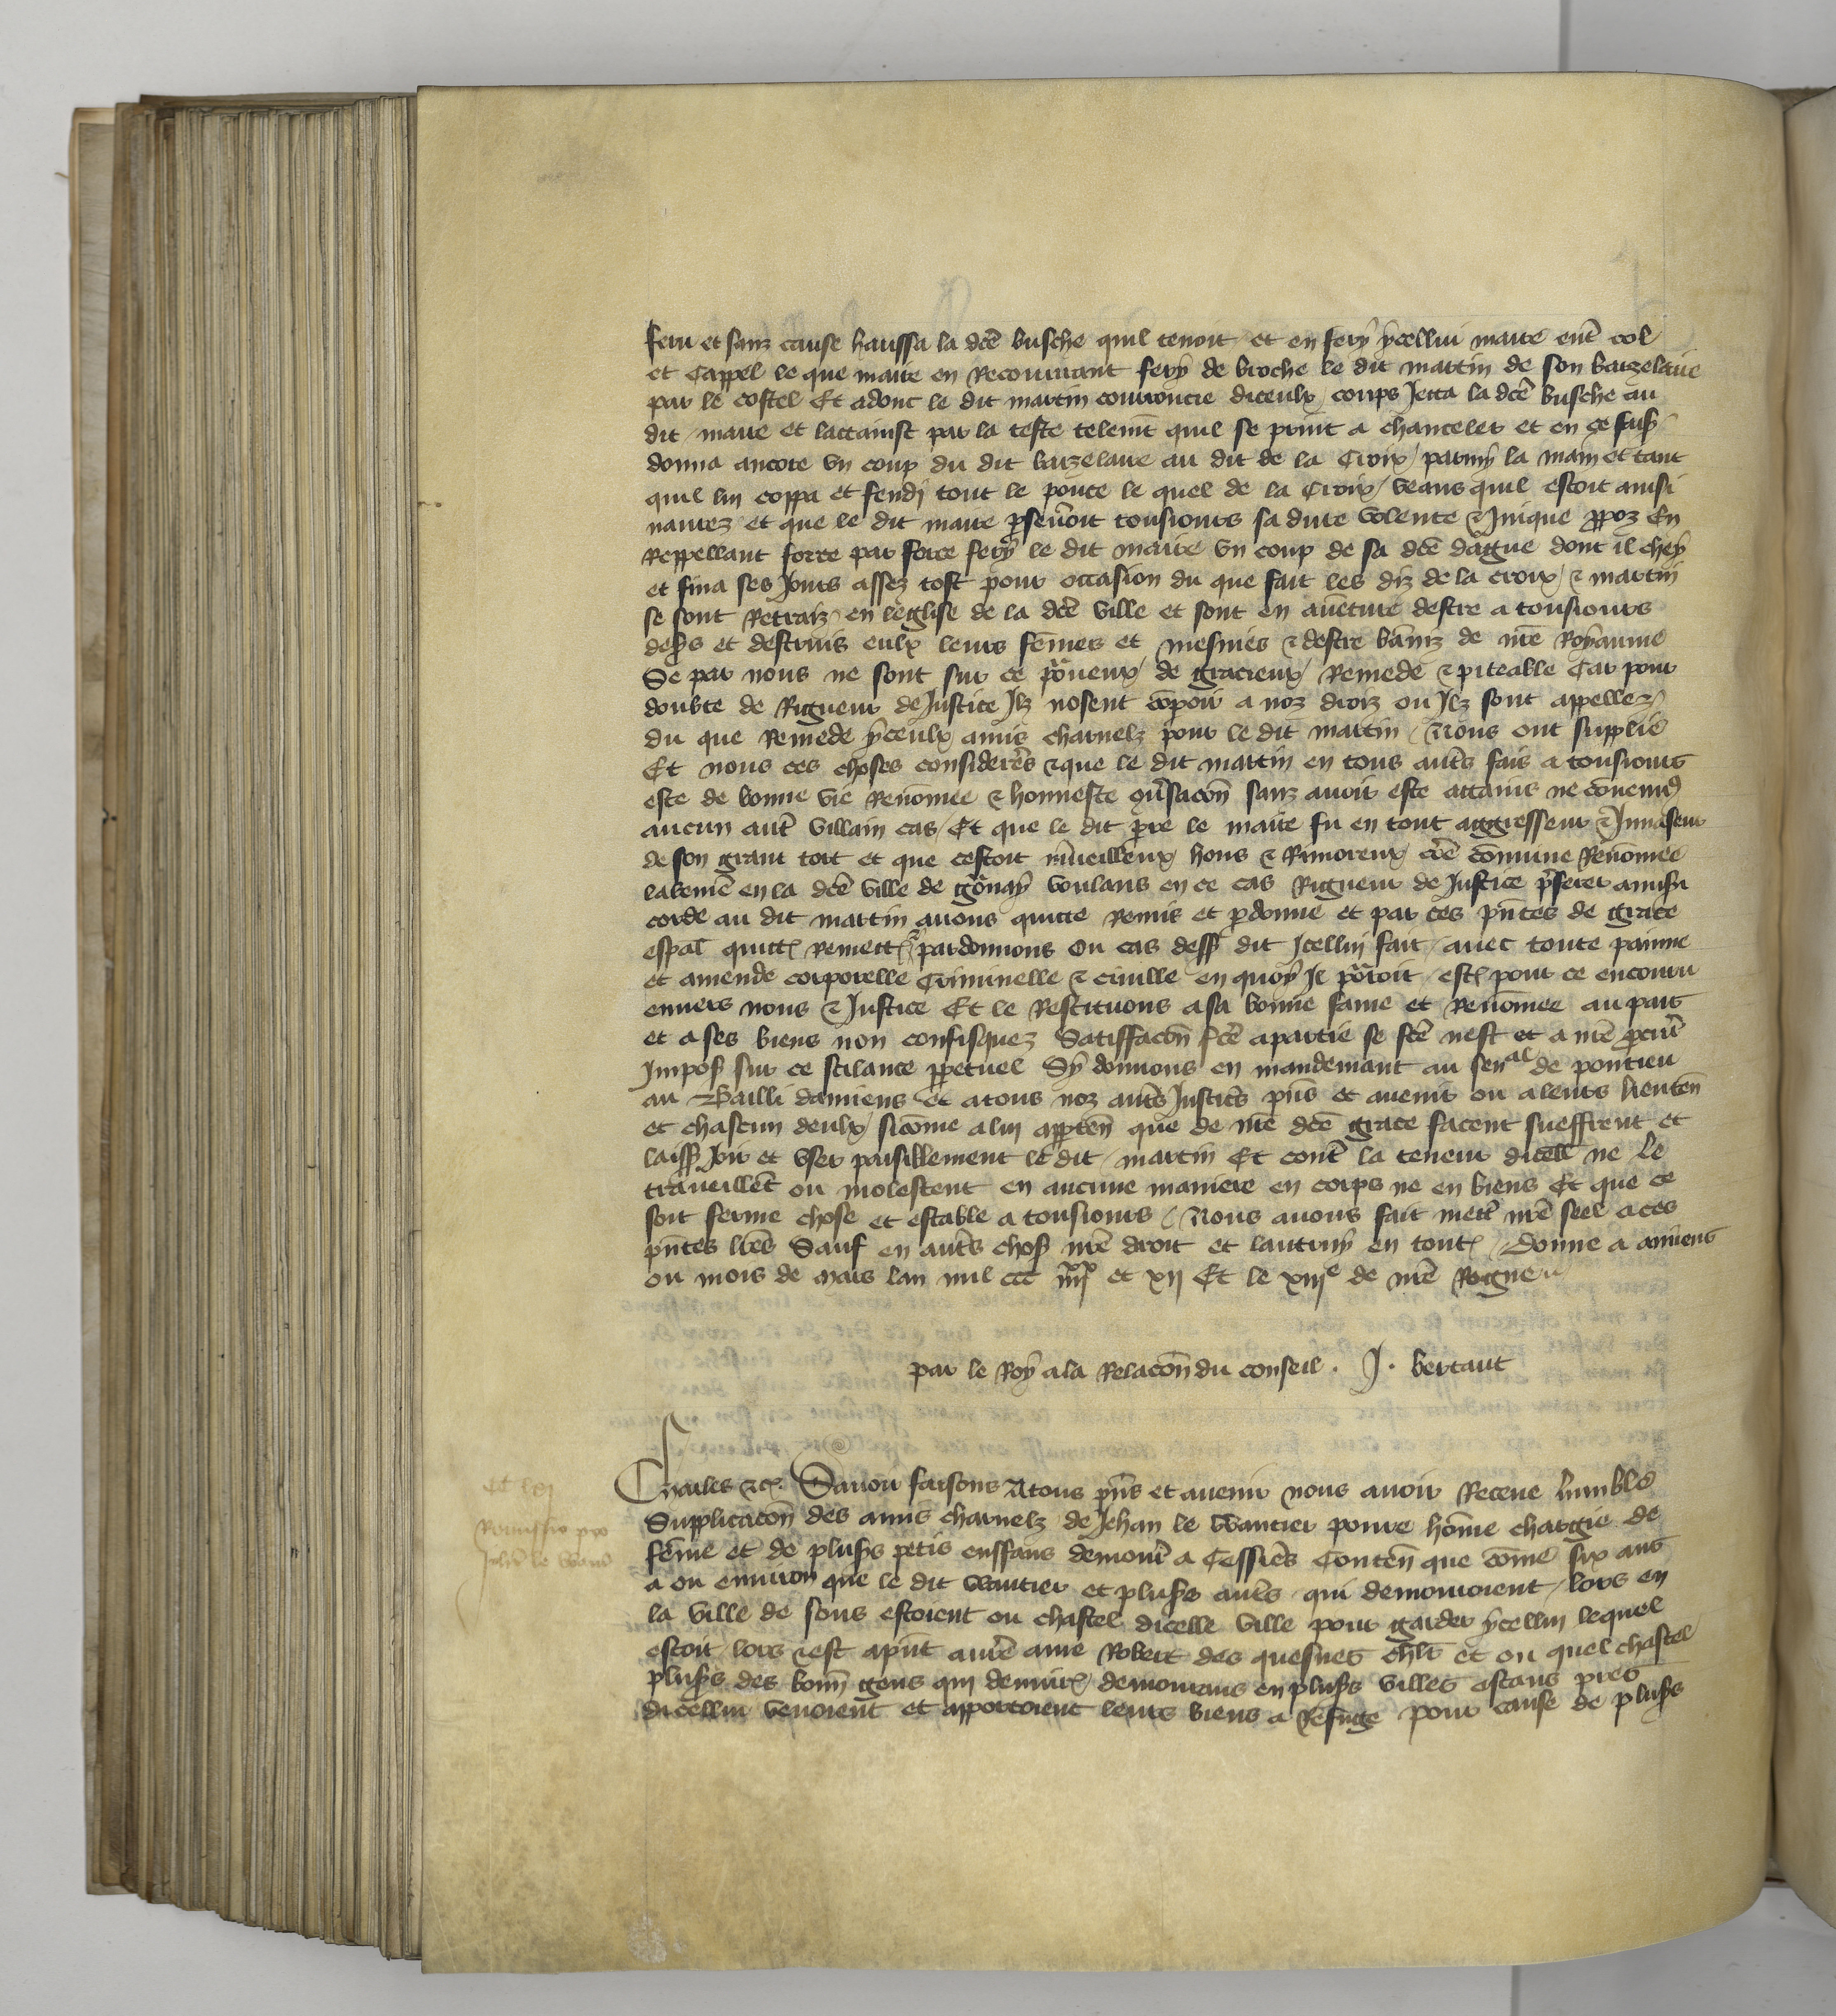 feru et sanz cause haussa la dcē busche quil tenoit et en fery ycellui maire ent̄ col
et cappel le que maire en Recouurant fery de broche le dit martin de son bazelaire
par le costel Et adonc le dit martin courroucie diceulx coups Jetta la dcē busche au
dit maire et lattainst par la teste telemt̄ quil se print a chanceler et en ce fais̄
donna ancore vn coup du dit bazelaire au dit de la Croix parmy la main et tant
quil lui coppa et fendj tout le pouce le quel de la Croix veans quil estoit ainsi
naurez et que le dit maire p̄seuōit tousiours sa dure volente & Jnique p̄poz En
Reppellant force par force fery le dit maire vn coup de sa dcē dague dont il chey
et fina ses Jours assez tost pour occasion du que fait les diz de la croix & martin
se sont Retraiz en leglise de la dcē ville et sont en auēture destre a tousiours
dess̄ et destruis eulx leurs fēmes et mesnies & destre bāniz de nrē Royaume
Se par nous ne sont sur ce p̄ueux de gracieux Remede & piteable Car pour
doubte de Rigueur de Justice Jlz nosent cōpoir a noz droiz ou Jlz sont appellez
du que Remede yceulx amis charnelz pour le dit martin Nous ont supplie
Et nous ces choses considerēs & que le dit martin en tous autēs fais a tousiours
este de bonne vie Renōmee & honneste ōusacōn sanz auoir este attains ne cōuencu
aucun aut̄ villain cas Et que le dit p̄re le maire fu en tout aggresseur & Jnuaseur
de son grant tort et que cestoit m̄ueilleux hons & Rimoreux et de cōmune Renōmee
labemē en la dcē ville de gōnay voulans en ce cas Rigueur de Justice p̄ferer a misri
corde au dit martin auons quitte Remis et p̄donne et par ces pn̄tes de grace
esp̄al quittꝭ remettꝭ & pardonnons ou cas dess̄ dit Jcellui fait auec toute painne
et amende corporelle Criminelle & ciuille en quoy Jl pōroit estꝭ pour ce encouru
enuers nous & Justice Et le Restituons a sa bonne fame et Renōmee au pais
et a ses biens non confisquez Satisfacōn fcē a partie se fcē nest et a nrē p̄cur̄
Jmpos̄ sur ce scilance p̄petuel Sy donnons en mandemant au senal de pontieu
au Bailli damiens et a tous noz autēs Justicēs pn̄s et auenir ou a leurs lieuten̄
et chascun deulx sicōme a lui apptēn que de nrē dcē grace facent sueffrent et
laiss̄ Joir et vser paisiblement le dit martin Et contē la teneur dicell̄ ne le
trauueillēt ou molestent en aucune maniere en corps ne en biens Et que ce
soit ferme chose et estable a tousiours Nous auons fait mett̄ nrē seel a ces
pn̄tes lrēs Sauf en autēs chos̄ nrē droit et lautruy en toutꝭ Donne a amiens
ou mois de mars lan mil ccc iiiixx et xij Et le xiije de nrē Regne
par le Roy a la Relacōn du conseil . J . bertaut
Charles &cꝭ. Sauoir faisons A tous pn̄s et auenir nous auoir Receue lumble
Supplicacōn des amis charnelz de Jehan le Wautier poure hōme chargie de
fēme et de plus̄s petis enffans demour̄ a Cessiers Conten̄ que cōme six ans
a ou enuiron que le dit wautier et plus̄s autēs qui demouroient lors en
la ville de sons estoient ou chastel dicelle ville pour garder ycellui lequel
estoit lors & est a pn̄t a nrē ame Robert des quesnes chlr̄ et ou quel chastel
plus̄s des bonn̄ gens qui demourꝭ demourans en plus̄s villes estans pres
dicellui venoient et apportoient leurs biens a Refuge pour cause de plus̄s
Remissio pro
Joh̄e le Waut̄